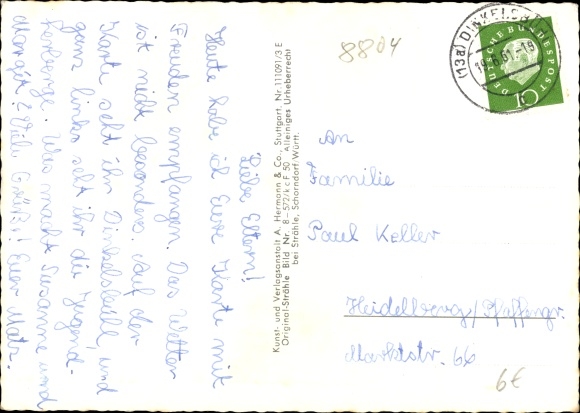 Liebe Eltern!
Heute habe ich Eure Karte mit
Freuden empfangen. Das Wetter
ist nicht besonders. Auf der
Karte seht ihr Dinkelsbühl, und
ganz links seht ihr die Jugend-
herberge. Was macht Susanne und
Margit? Viele Grüße! Euer Matz.
Kunst- und Verlagsanstalt A. Hermann & Co., Stuttgart, Nr. 111091/3 E
Original-Strähle Bild Nr. 8-572/k c F 50 - Alleiniges Urheberrecht
bei Strähle, Schorndorf-Württ.
8804
(13a) DINKELSBÜHL
19.6.61.-19
DEUTSCHE BUNDESPOST
10
An
Familie
Paul Keller
Heidelberg/Pfaffengr.
Marktstr. 66
6€